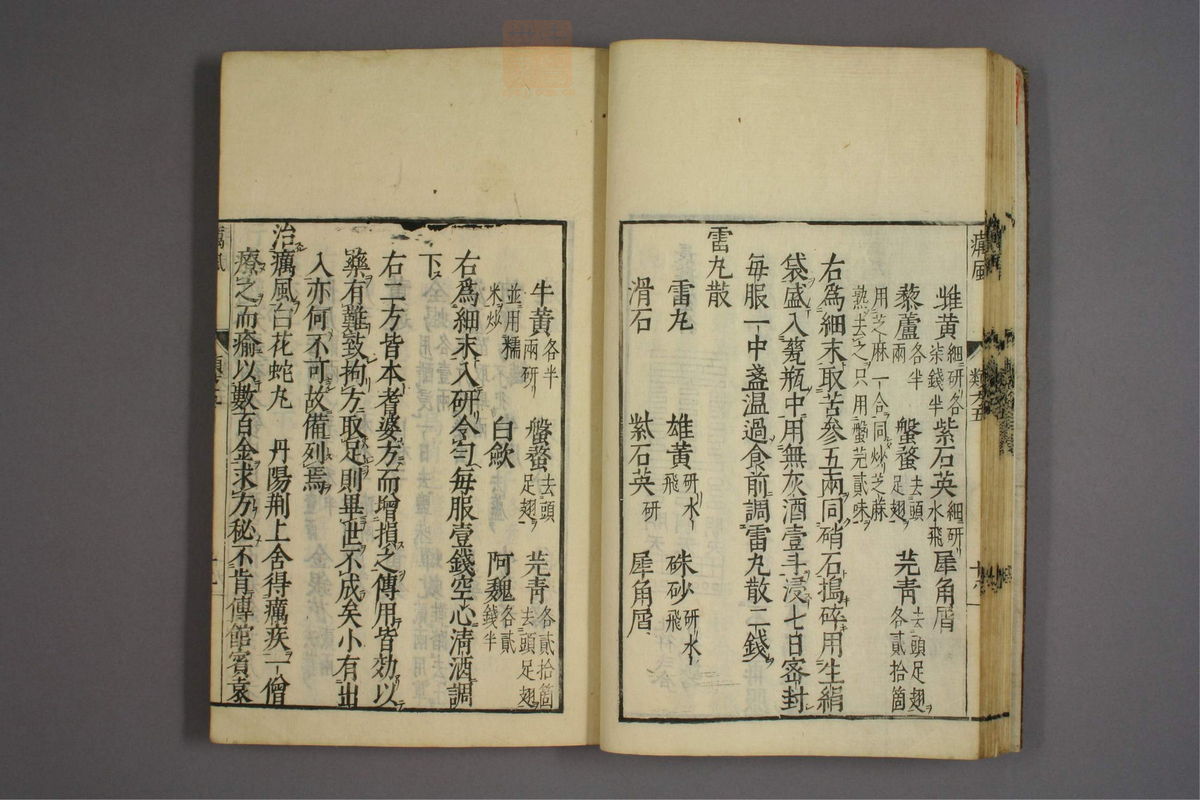 癘風 類九五
雄黃細研各柒錢半 紫石英細研水飛 犀角屑
藜蘆各半兩 盤蝥去頭足翅 芫青去頭足翅各貳拾箇
用芝麻一合同炒芝麻熟去之只用盤芫貳味
右爲細末取苦參五兩同硝石搗碎用生絹
袋盛入甆瓶中用無灰酒壹斗浸七日密封
每服一中盞温過食前調雷丸散二錢
雷丸散
雷丸 雄黃研水飛 硃砂研水飛
滑石 紫石英研 犀角屑
牛黃各半兩研 盤蝥去頭足翅 芫青各貳拾箇去頭足翅
並用糯米炒 白歛 阿魏各貳錢半
右爲細末入研令勻每服壹錢空心清酒調
下
右二方皆本耆婆方而增損之傳用皆効以
藥有難致拘方取足則畢世不成矣小有出
入亦何不可故備列焉
治癘風白花蛇丸 丹陽荊上舍得癘疾一僧
療之而瘉以數百金求方秘不肯傳館賓袁